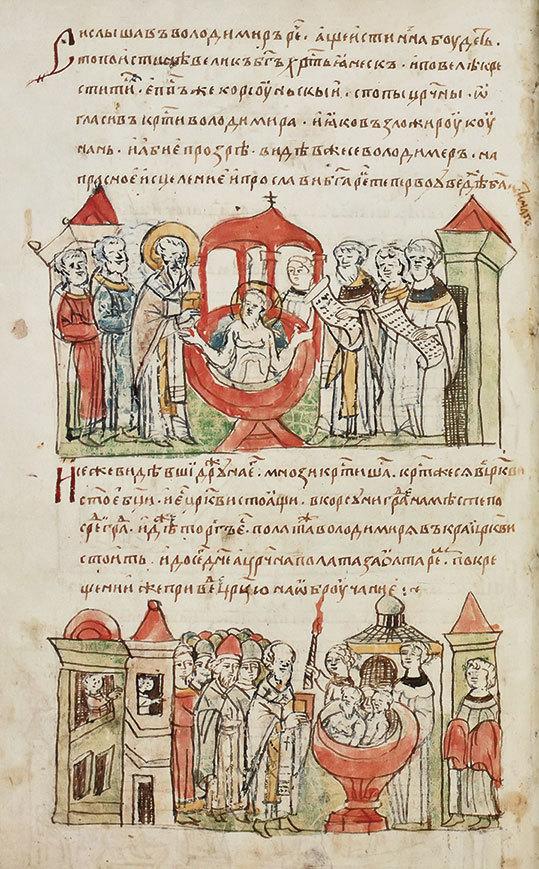 И слышавъ володимиръ рⷱ҇е . аще истинна боудеть .
то поистинѣ великъ б҃гъ хрⷭ҇тьꙗнескъ . и повелѣ кре
стити сⷶ . еп҃пъ же корсоуньскыи . с попы цр҃чны . ѡ
гласивъ кр҃ти володимира . и ꙗко възложи роукоу
нань . и абие прозрѣ . видѣвже се володимеръ . на
прасное исцеление и прослави б҃га реⷱ то первоу ведѣ б҃га
И се же видѣвши дроужина еⷢ . мнози кр҃тишаⷭ . кр҃ти же ся в цр҃кви
ст҃ое б҃ци . и еⷭ цр҃кви стоꙗщи . в корсуни граⷣ на мѣсте по
среⷣ граⷣ . идѣⷤ торгъ еⷨ . полата володимиря въ краи цр҃кви
стоить . и до сеⷢ дне . а цр҃чна полата за олтареⷨ . по кре
щении же приведе цр҃цю на ѡброучание :~